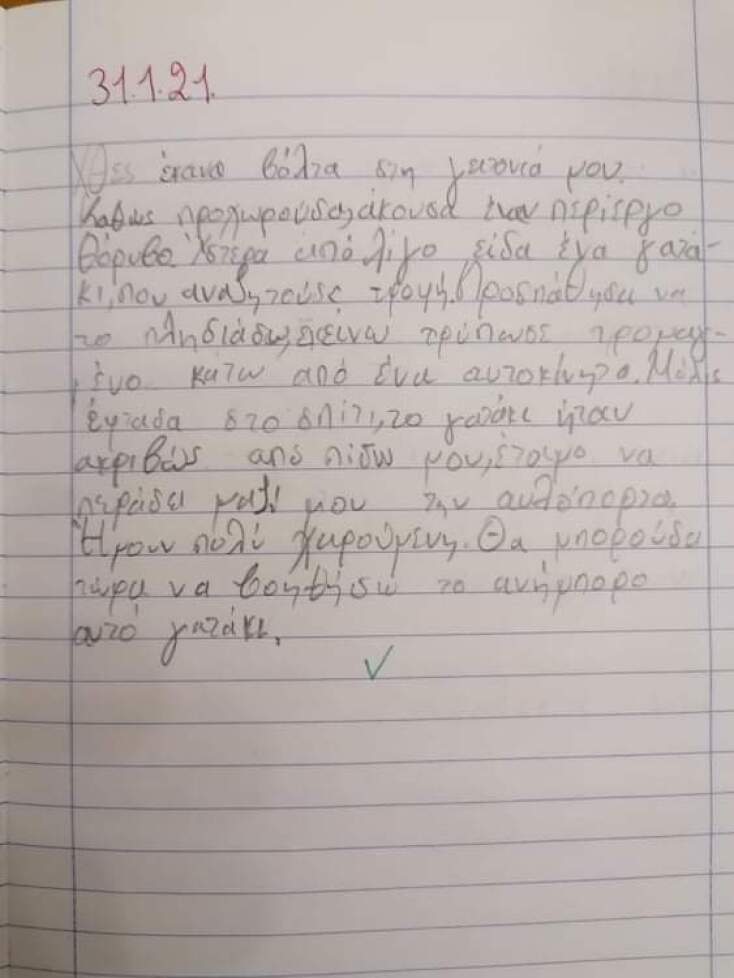 31.1.21.
Χθες έκανα βόλτα στη γειτονιά μου.
Καθώς προχωρούσα, άκουσα έναν περίεργο
θόρυβο. Ύστερα από λίγο είδα ένα γατά-
κι, που αναζητούσε τροφή. Προσπάθησα να
το πλησιάσω, εκείνο τρύπωσε τρομαγ-
μένο κάτω από ένα αυτοκίνητο. Μόλις
έφτασα στο σπίτι, το γατάκι ήταν
ακριβώς από πίσω μου, έτοιμο να
περάσει μαζί μου την αυλόπορτα.
Ήμουν πολύ χαρούμενη. Θα μπορούσα
τώρα να βοηθήσω το ανήμπορο
αυτό γατάκι.